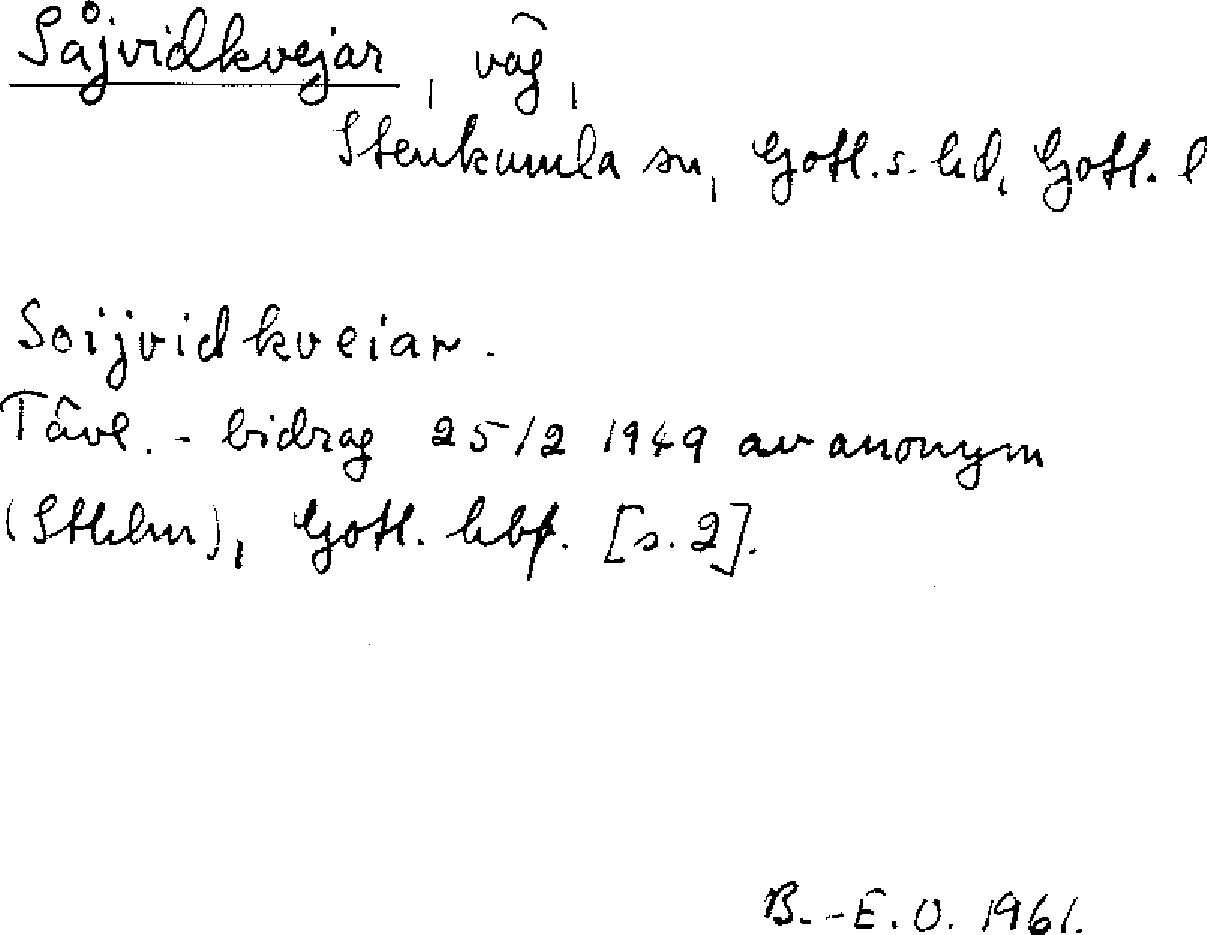 Såjvidkvejar, väg,
Stenkumla sn, Gotl. s. hd, Gotl. l
Soijvidkveiar.
Tävl. - bidrag 25/2 1949 av anonym
(Sthlm), Gotl. hbf. [s. 2].
B.-E. O. 1961.